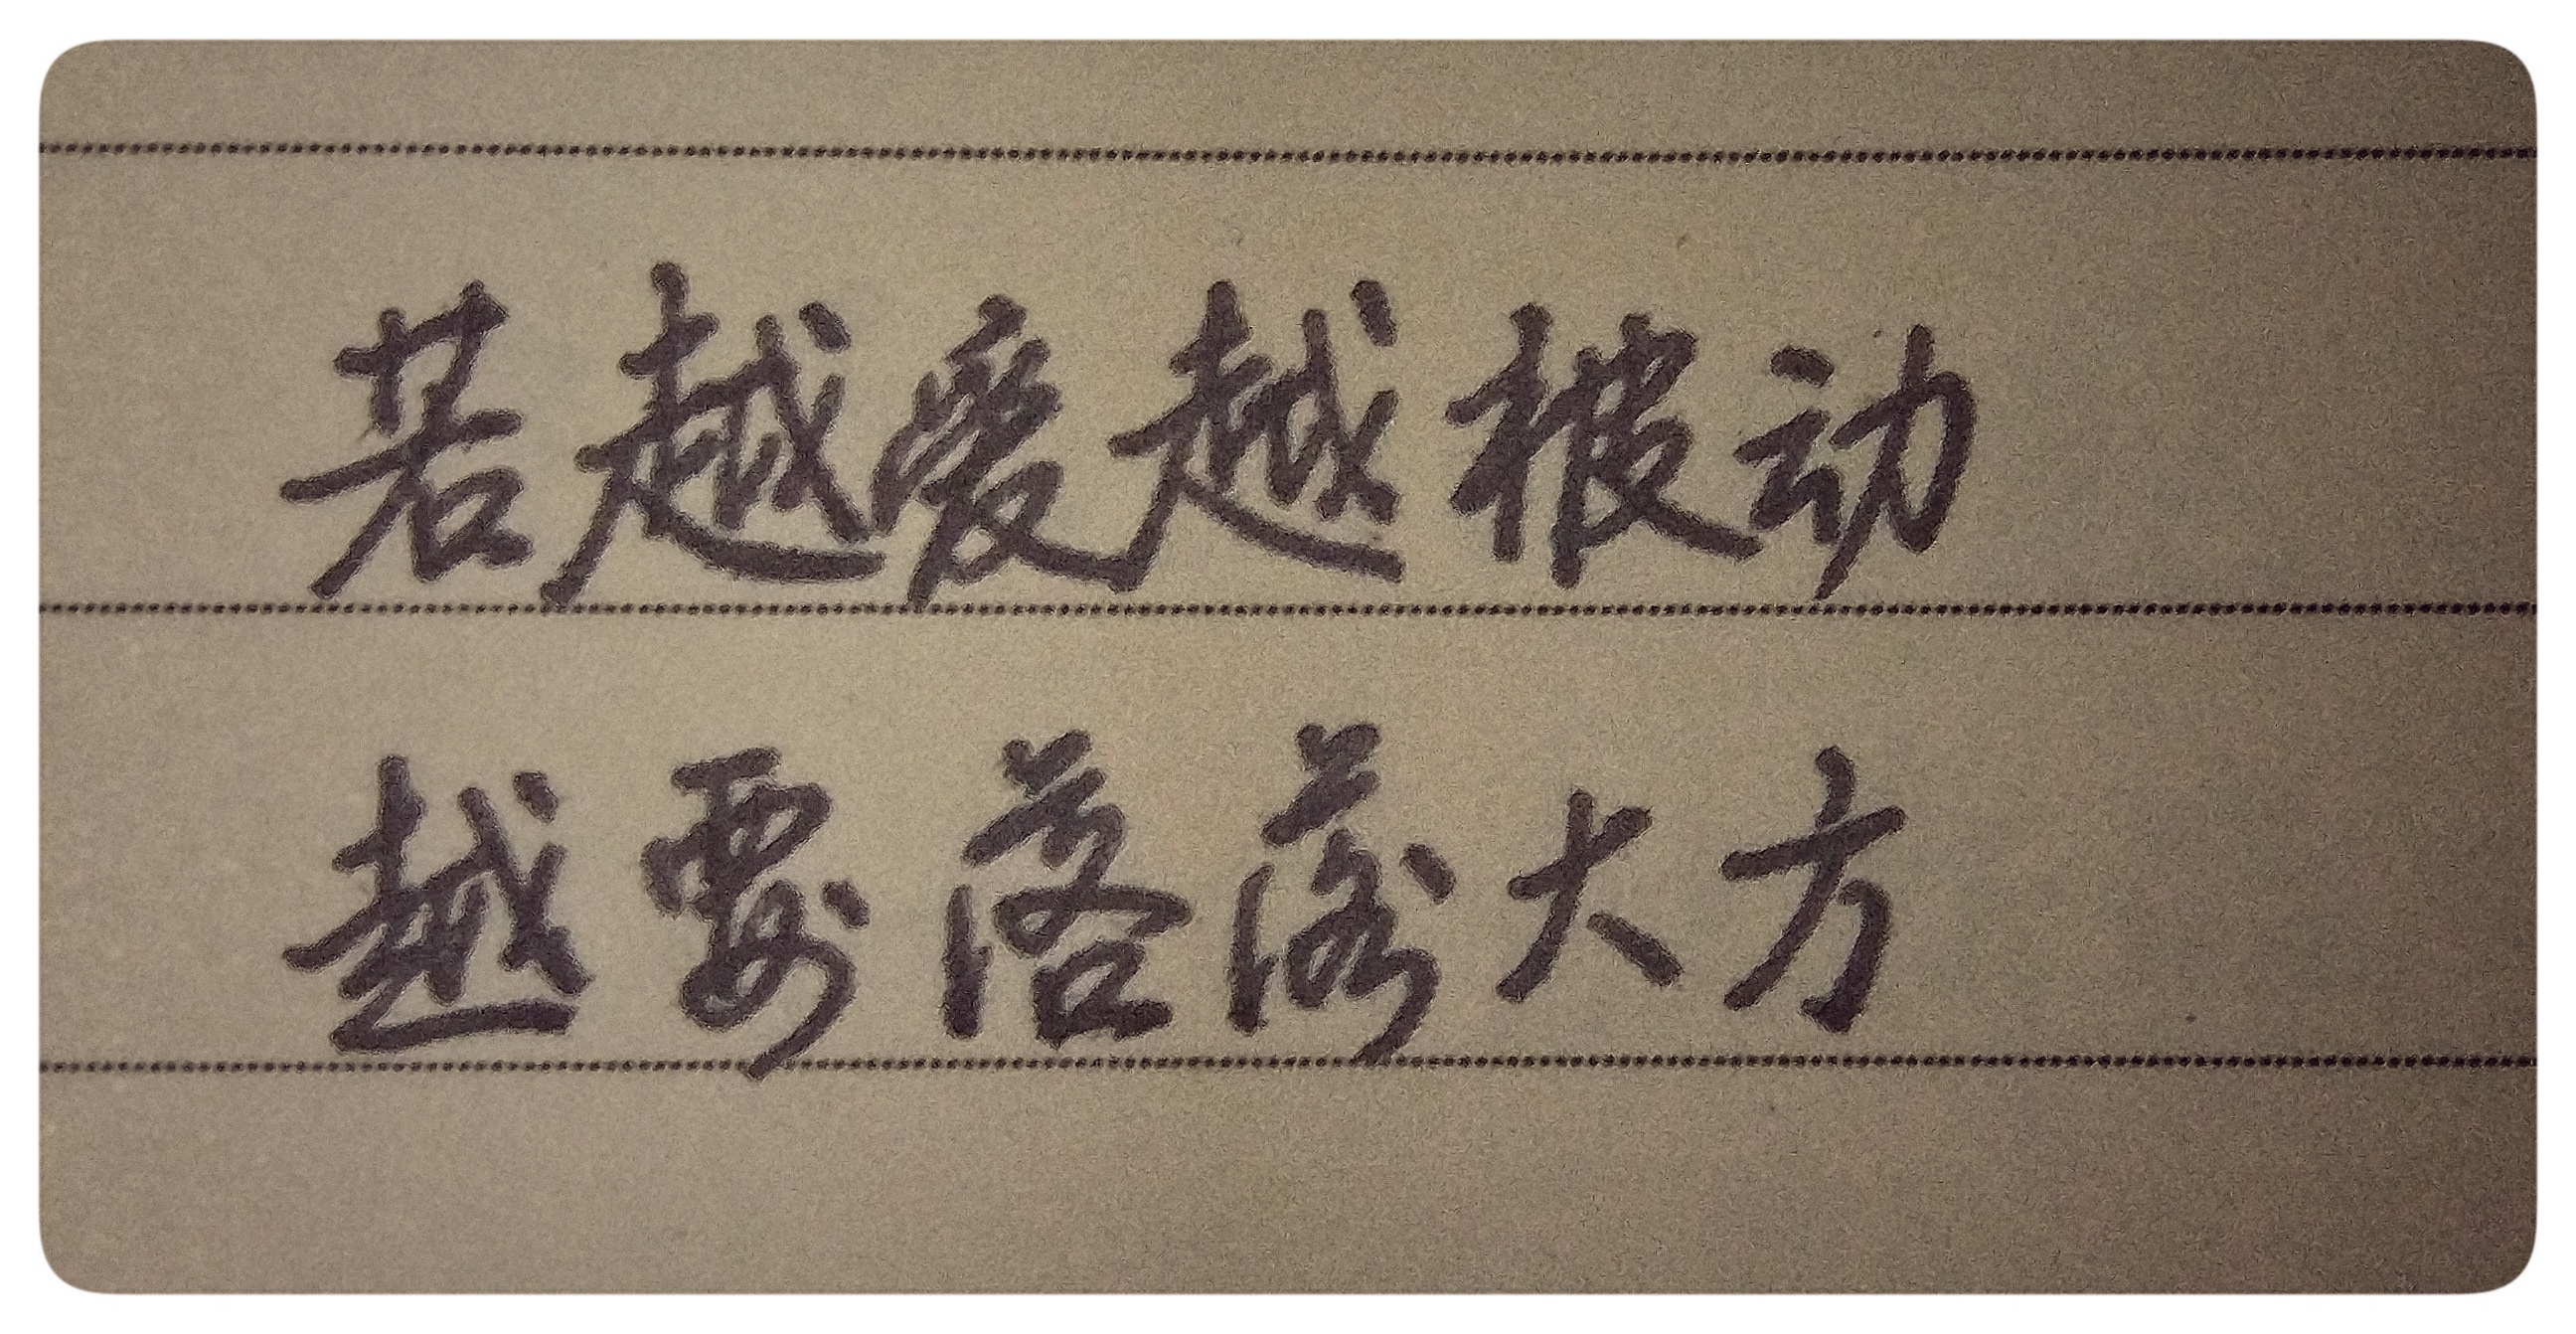 若越爱越被动
越要落落大方